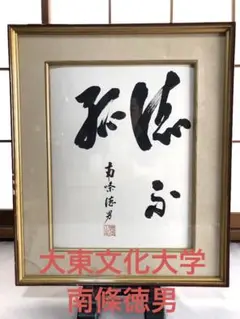 徳不
孤
南条徳男
大東文化大学
南條徳男